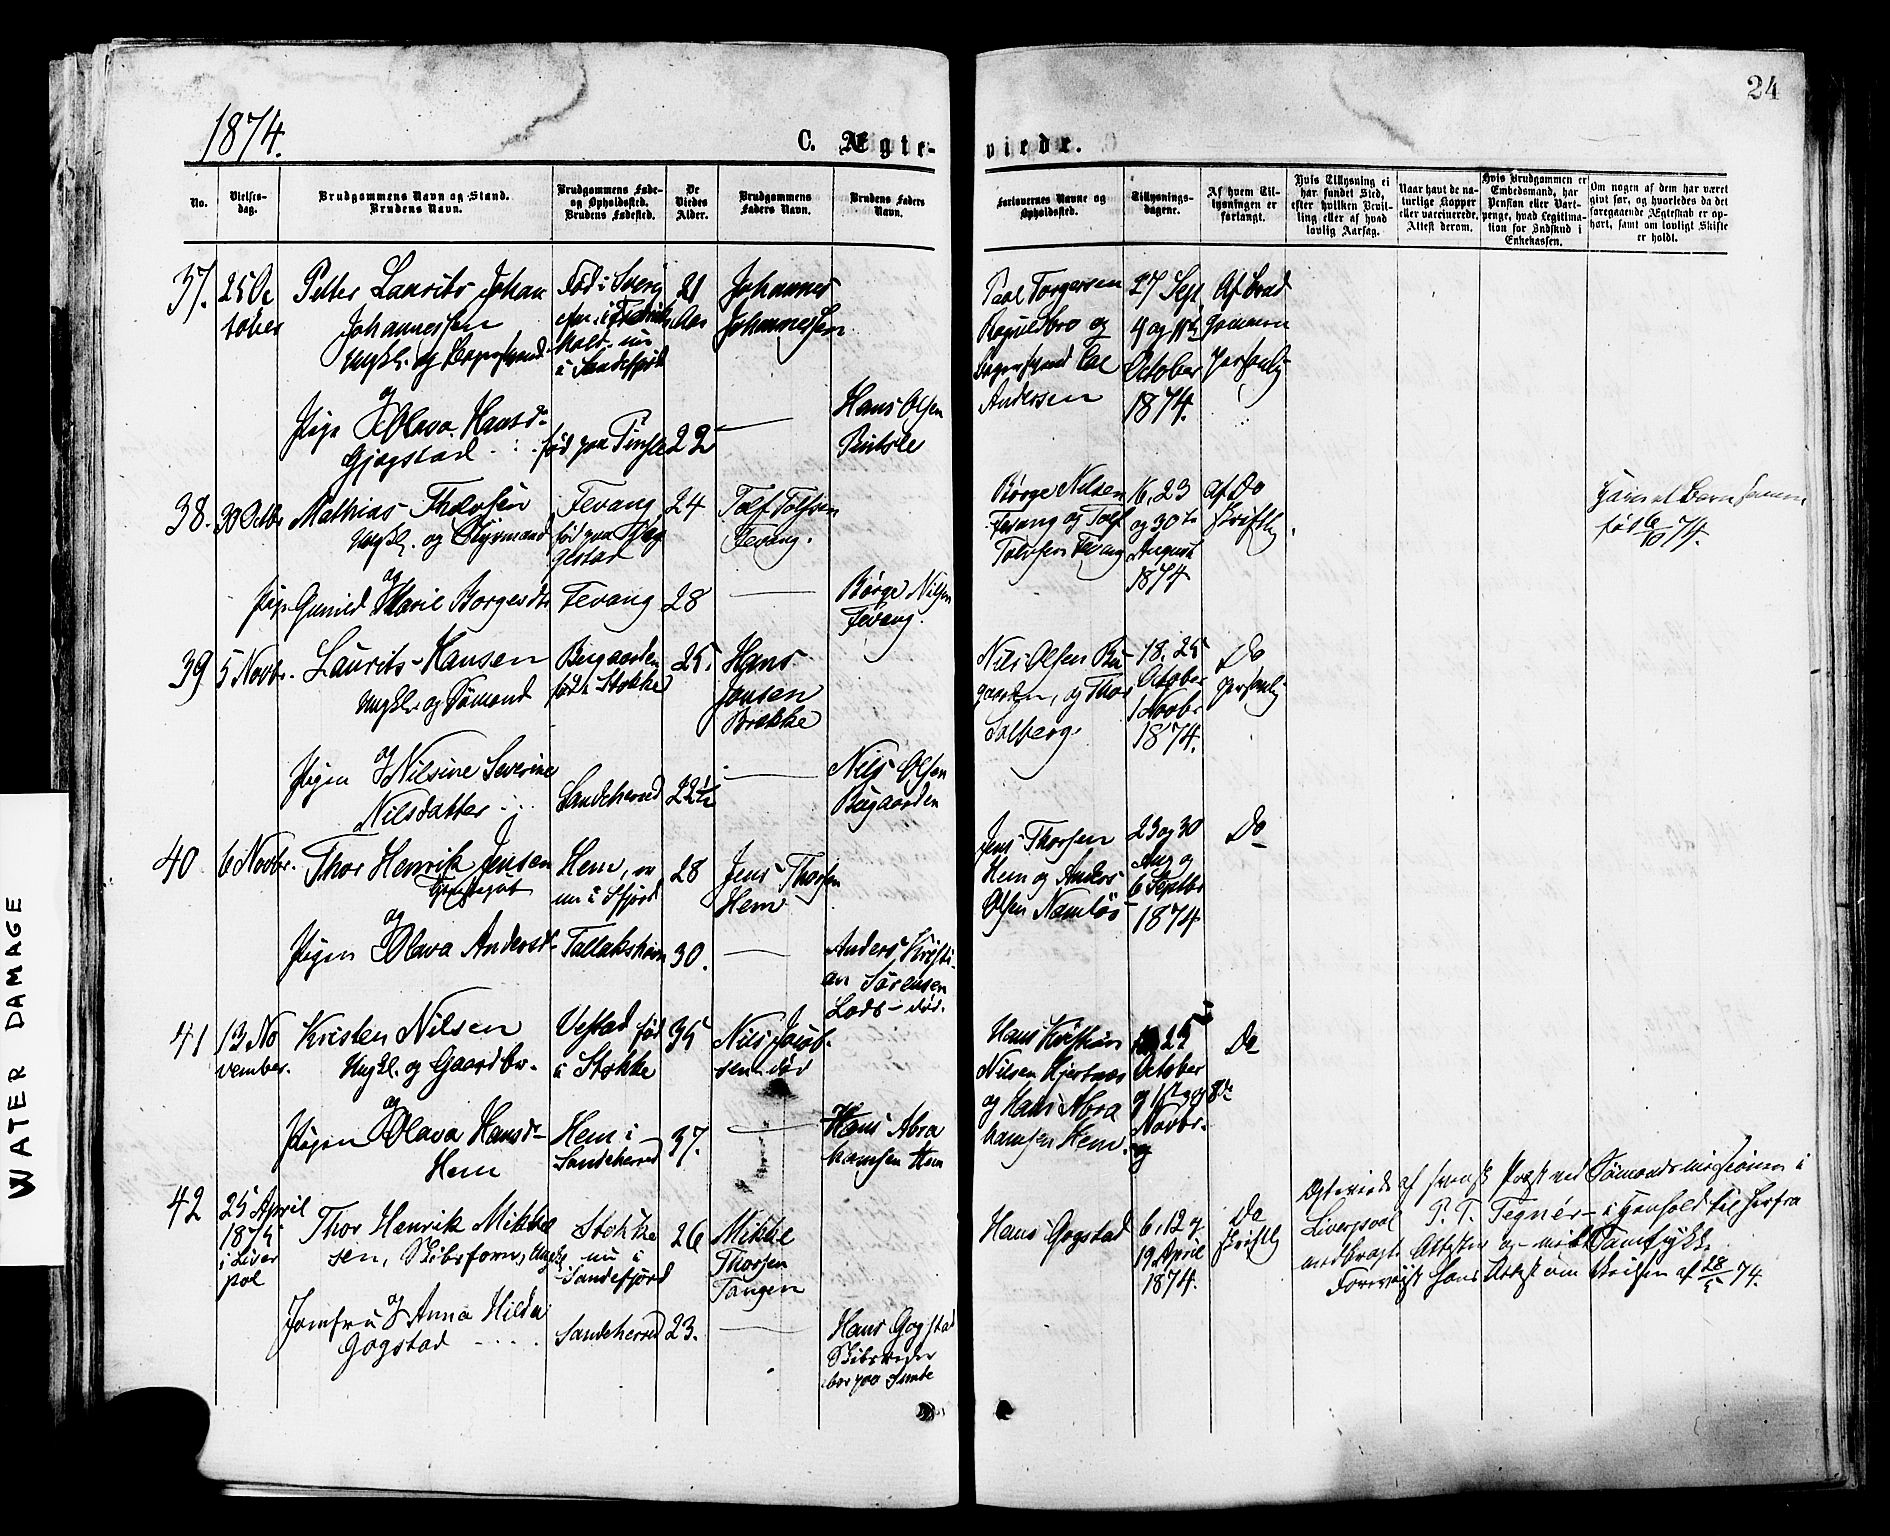 24
1874.
C. Ægte-
viede.
No.
Vielses-
dag.
Brudgommens Navn og Stand.
Brudens Navn.
Brudgommens Føde-
og Opholdssted.
Brudens Fødested.
De
Viedes
Alder.
Brudgommens
Faders Navn.
Brudens Faders
Navn.
Forlovernes Navne og
Opholdssted.
Tillysnings-
dagene.
Af hvem Til-
lysningen er
forlangt.
Hvis Tillysning ei
har fundet Sted,
efter hvilken Bevil-
ling eller af hvad
lovlig Aarsag.
Naar havt de na-
turlige Kopper
eller vaccinerede.
Attest derom.
Hvis Brudgommen er
Embedsmand, har
Pension eller Vart-
penge, hvad Legitima-
tion for Indskud i
Enkekassen.
Om nogen af dem har været
givt før, og hvorledes da det
foregaaende Ægteskab er op-
hørt, samt om lovligt Skifte
er holdt.
37.
25 Oc
tober
Petter Laurits Johan
Johannessen
Ungkl. og
og
Pige Olava Hansd-
Gjøgstad
Født i Sverig
nu
i Sandefjord
født paa
21
Aar
22
Johannes
Johannessen
Hans Olsen
Paal Torgersen
og
Andersen
27 Sept
4 og 11te
October
1874.
Af Brud
gommen
personlig
38.
30 Octbr
Mathias Thorsen
Ungkl. og Styrmand
og
Pige Gunild Marie Borgesdtr
Fevang
født paa
gestad
Fevang
24
28
Tolf Tolfsen
Fevang.
Børge Nilsen
Fevang.
Børge Nilsen
Fevang og Tolf
Tolfsen Fevang
16, 23
og 30te
August
1874
af Do
skriftlig
74.
39
5 Novbr.
Laurits Hansen
Ungkl. og Sømand
og
Pigen Nilsine Severine
Nilsdatter
Bugaarden
født i Stokke
Sandeherred
25.
22½
Hans
Jensen
Brekke
Nils Olsen
Bugaarden
Nils Olsen Bu-
gaarden, og Thor
Solberg.
18, 25
October
1 Novbr
1874.
Do
personlig
40
6 Novbr.
Thor Henrik Jensen
og
Pigen Olava Andersd-
Hem,
nu i Sfjord
Tallakshavn
28
30.
Jens Thorsen
Hem
Anders Kristi-
an Sørensen
Lods - død.
Jens Thorsen
Hem og Anders
Olsen
23 og 30
Aug og
6 Septbr
1874
Do
41
13 No
vember.
Kristen Nilsen
Ungkl. og Gaardbr.
og
Pigen Olava Hansd-
Hem
Vestad født
i Stokke
Hem i
Sandeherred
35
37.
Nils Jacob-
sen død
Hans Abra
hamsen Hem
Hans Kristian
Nilsen Hjertnæs
og Hans Abra
hamsen Hem.
25
October
og 1ste og 8de
Novbr.
Do
42
25 April
1874
i Liver
pol
Thor Henrik Mikkel
sen, Skibsfører, Ungkl
Jomfru og Anna Hilda
Gogstad
Stokke
nu i
Sandefjord
Sandeherred
26
23.
Mikkel
Thorsen
Tangen
Hans Gogstad
Skibsreder
bor paa
Hans Gogstad
6, 12 og
19 April
1874.
Do
skriftlig
Ægteviede af svensk Præst ved Sømandsmissionen i
Liverpool P. T. Tegnér i Henhold til herfra
Attester
hans Attest om Vielsen af 28/5 74.
WATER DAMAGE